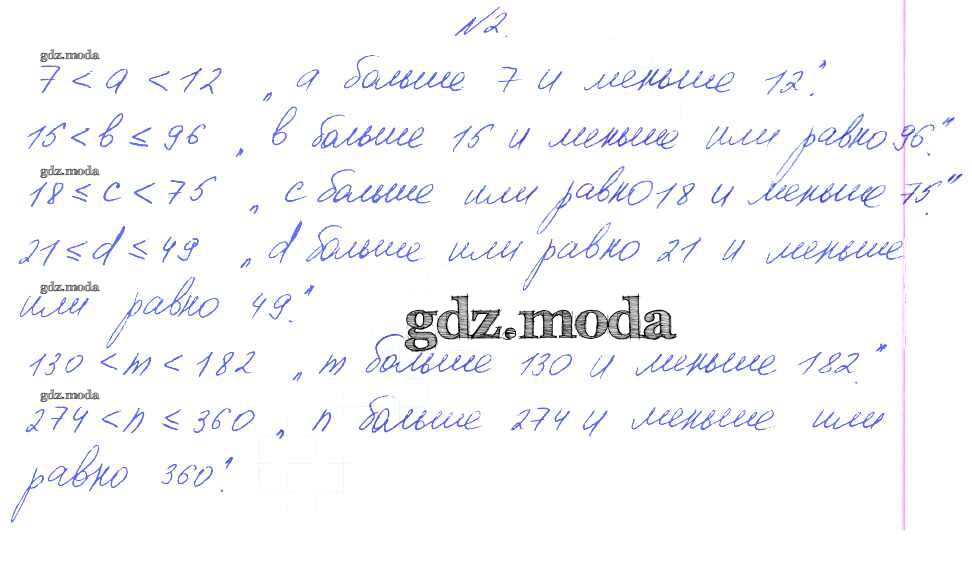 №2.
gdz.moda
7 < a < 12 „a больше 7 и меньше 12".
15 < b ≤ 96 „b больше 15 и меньше или равно 96".
gdz.moda
18 ≤ c < 75 „c больше или равно 18 и меньше 75".
21 ≤ d ≤ 49 „d больше или равно 21 и меньше
gdz.moda
или равно 49".
gdz.moda
130 < m < 182 „m больше 130 и меньше 182".
gdz.moda
274 < n ≤ 360 „n больше 274 и меньше или
равно 360".